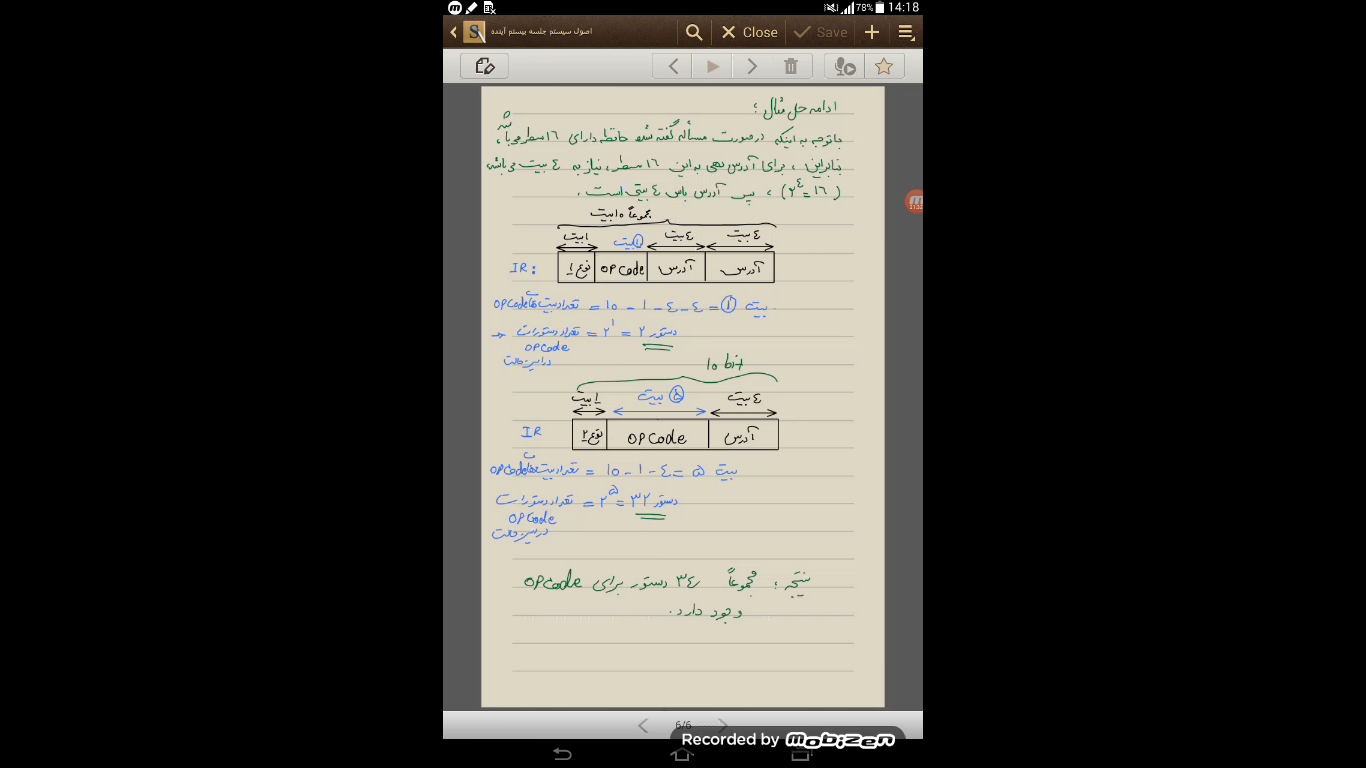 14:18
78%
اصول سیستم جلسه بیستم آینده
Close
Save
ادامه حل مثال :
باتوجه به اینکه درصورت مسأله گفته شده حافظه دارای ۱۶ سطر می‌باشد،
بنابراین ، برای آدرس دهی به این ۱۶ سطر، نیاز به ٤ بیت می باشد
(۲^٤ = ۱۶) ، پس آدرس باس ٤ بیتی است .
مجموعاً ۱۰ بیت
۱ بیت ۱ بیت ٤ بیت ٤ بیت
IR: نوع ۱ OPCode آدرس آدرس
تعداد بیت های OPCode = ۱۰ - ۱ - ٤ - ٤ = ۱ بیت
تعداد دستورات = ۲^۱ = ۲ دستور
OPCode
دراین حالت
۱۰ bit
۱ بیت ۵ بیت ٤ بیت
IR نوع ۲ OPCode آدرس
تعداد بیت های OPCode = ۱۰ - ۱ - ٤ = ۵ بیت
تعداد دستورات = ۲^۵ = ۳۲ دستور
OPCode
دراین حالت
نتیجه : مجموعاً ۳٤ دستور برای OPCode
وجود دارد.
6/6
Recorded by mobizen